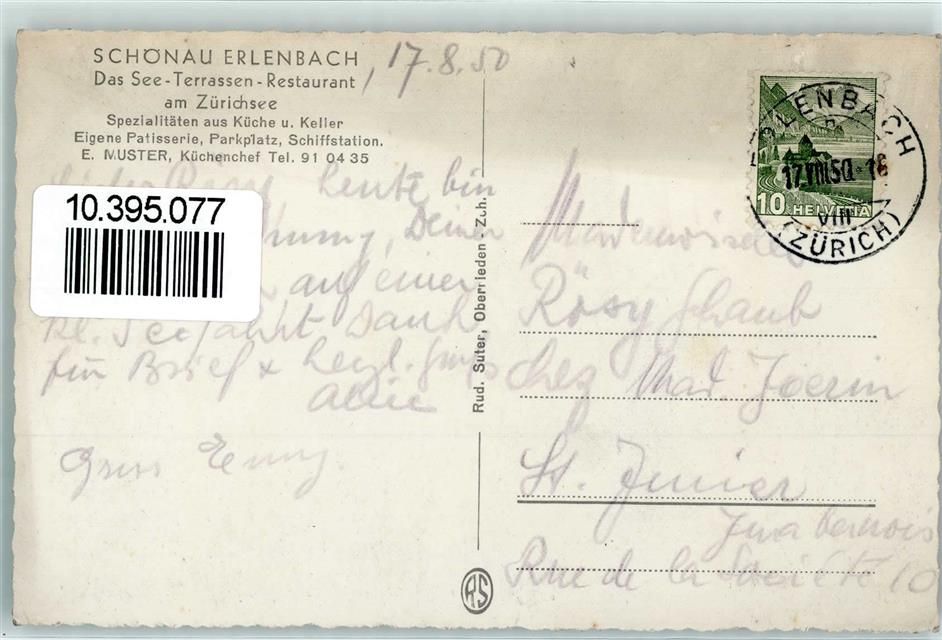 SCHÖNAU ERLENBACH
Das See-Terrassen-Restaurant
am Zürichsee
Spezialitäten aus Küche u. Keller
Eigene Patisserie, Parkplatz, Schiffstation.
E. MUSTER, Küchenchef Tel. 91 04 35
17.8.50
heute bin
Deiner
auf einer
kl. Seefahrt. Dank
für Brief & herzl. Gruss
Gruss Emmy
10.395.077
Rud. Suter, Oberrieden-Zch.
RS
ERLENBACH
17.VIII.50-16
VIII
(ZÜRICH)
10 HELVETIA
Mademoiselle
Rösy Schaub
chez Mad. Joerin
St. Imier
Jura bernois
Rue de la Société 10